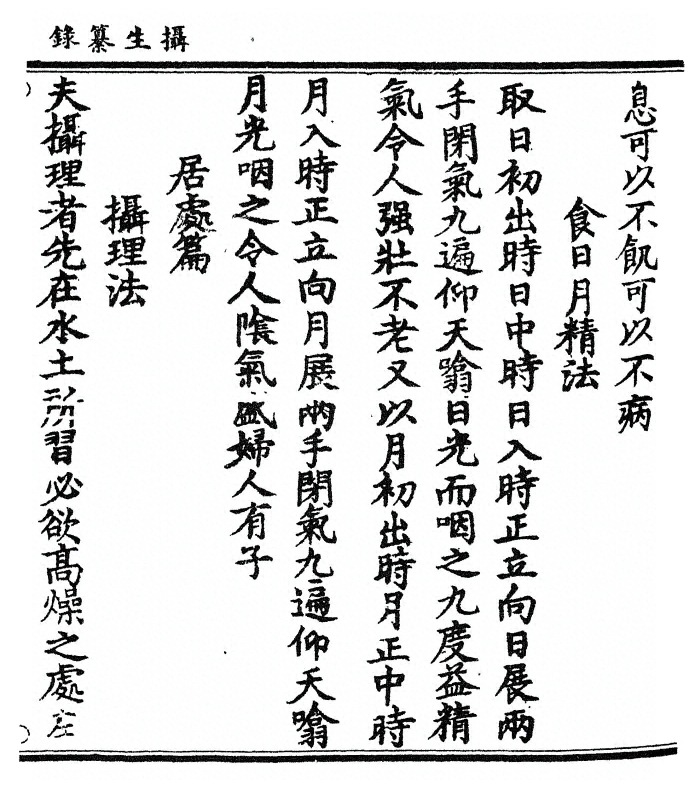 攝生纂錄
息可以不飢可以不病
食日月精法
取日初出時日中時日入時正立向日展兩
手閉氣九遍仰天噏日光而咽之九度益精
氣令人强壯不老又以月初出時月正中時
月入時正立向月展兩手閉氣九遍仰天噏
月光咽之令人陰氣盛婦人有子
居處篇
攝理法
夫攝理者先在水土所習必欲高燥之處左